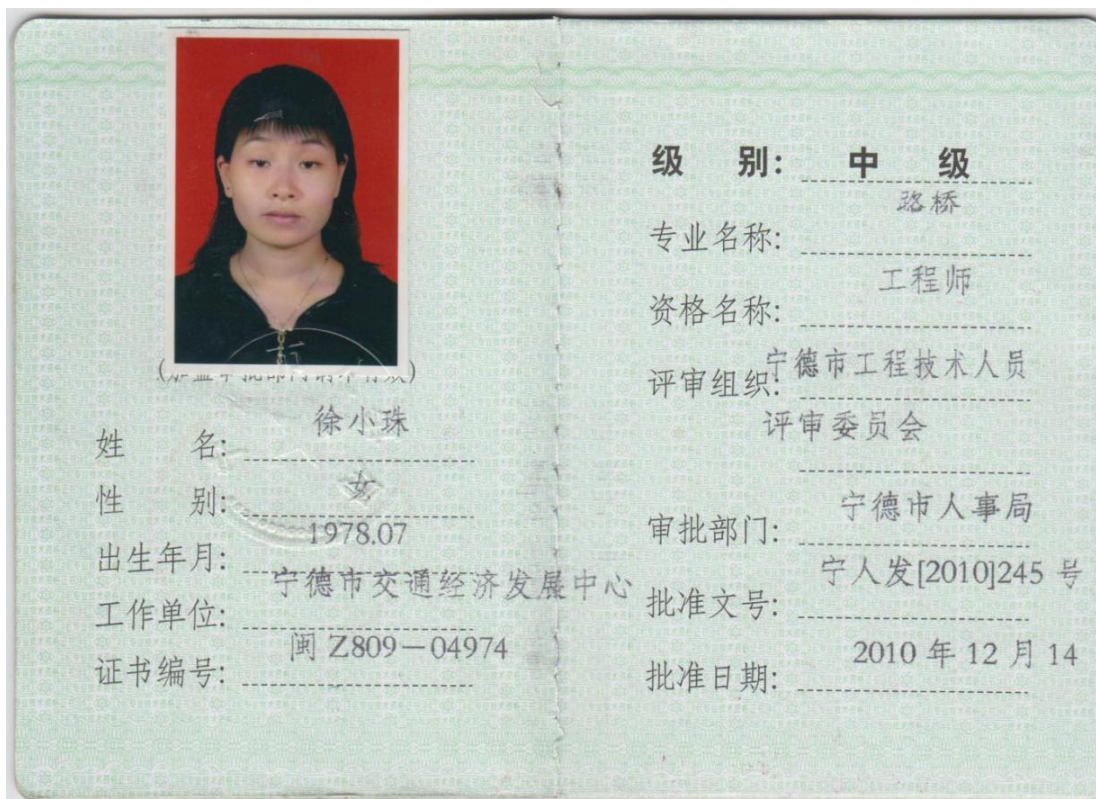 姓 名: 徐小珠
性 别: 女
出生年月: 1978.07
工作单位: 宁德市交通经济发展中心
证书编号: 闽 Z809－04974
级 别: 中 级
专业名称: 路桥
资格名称: 工程师
评审组织: 宁德市工程技术人员
评审委员会
审批部门: 宁德市人事局
批准文号: 宁人发[2010]245 号
批准日期: 2010 年 12 月 14